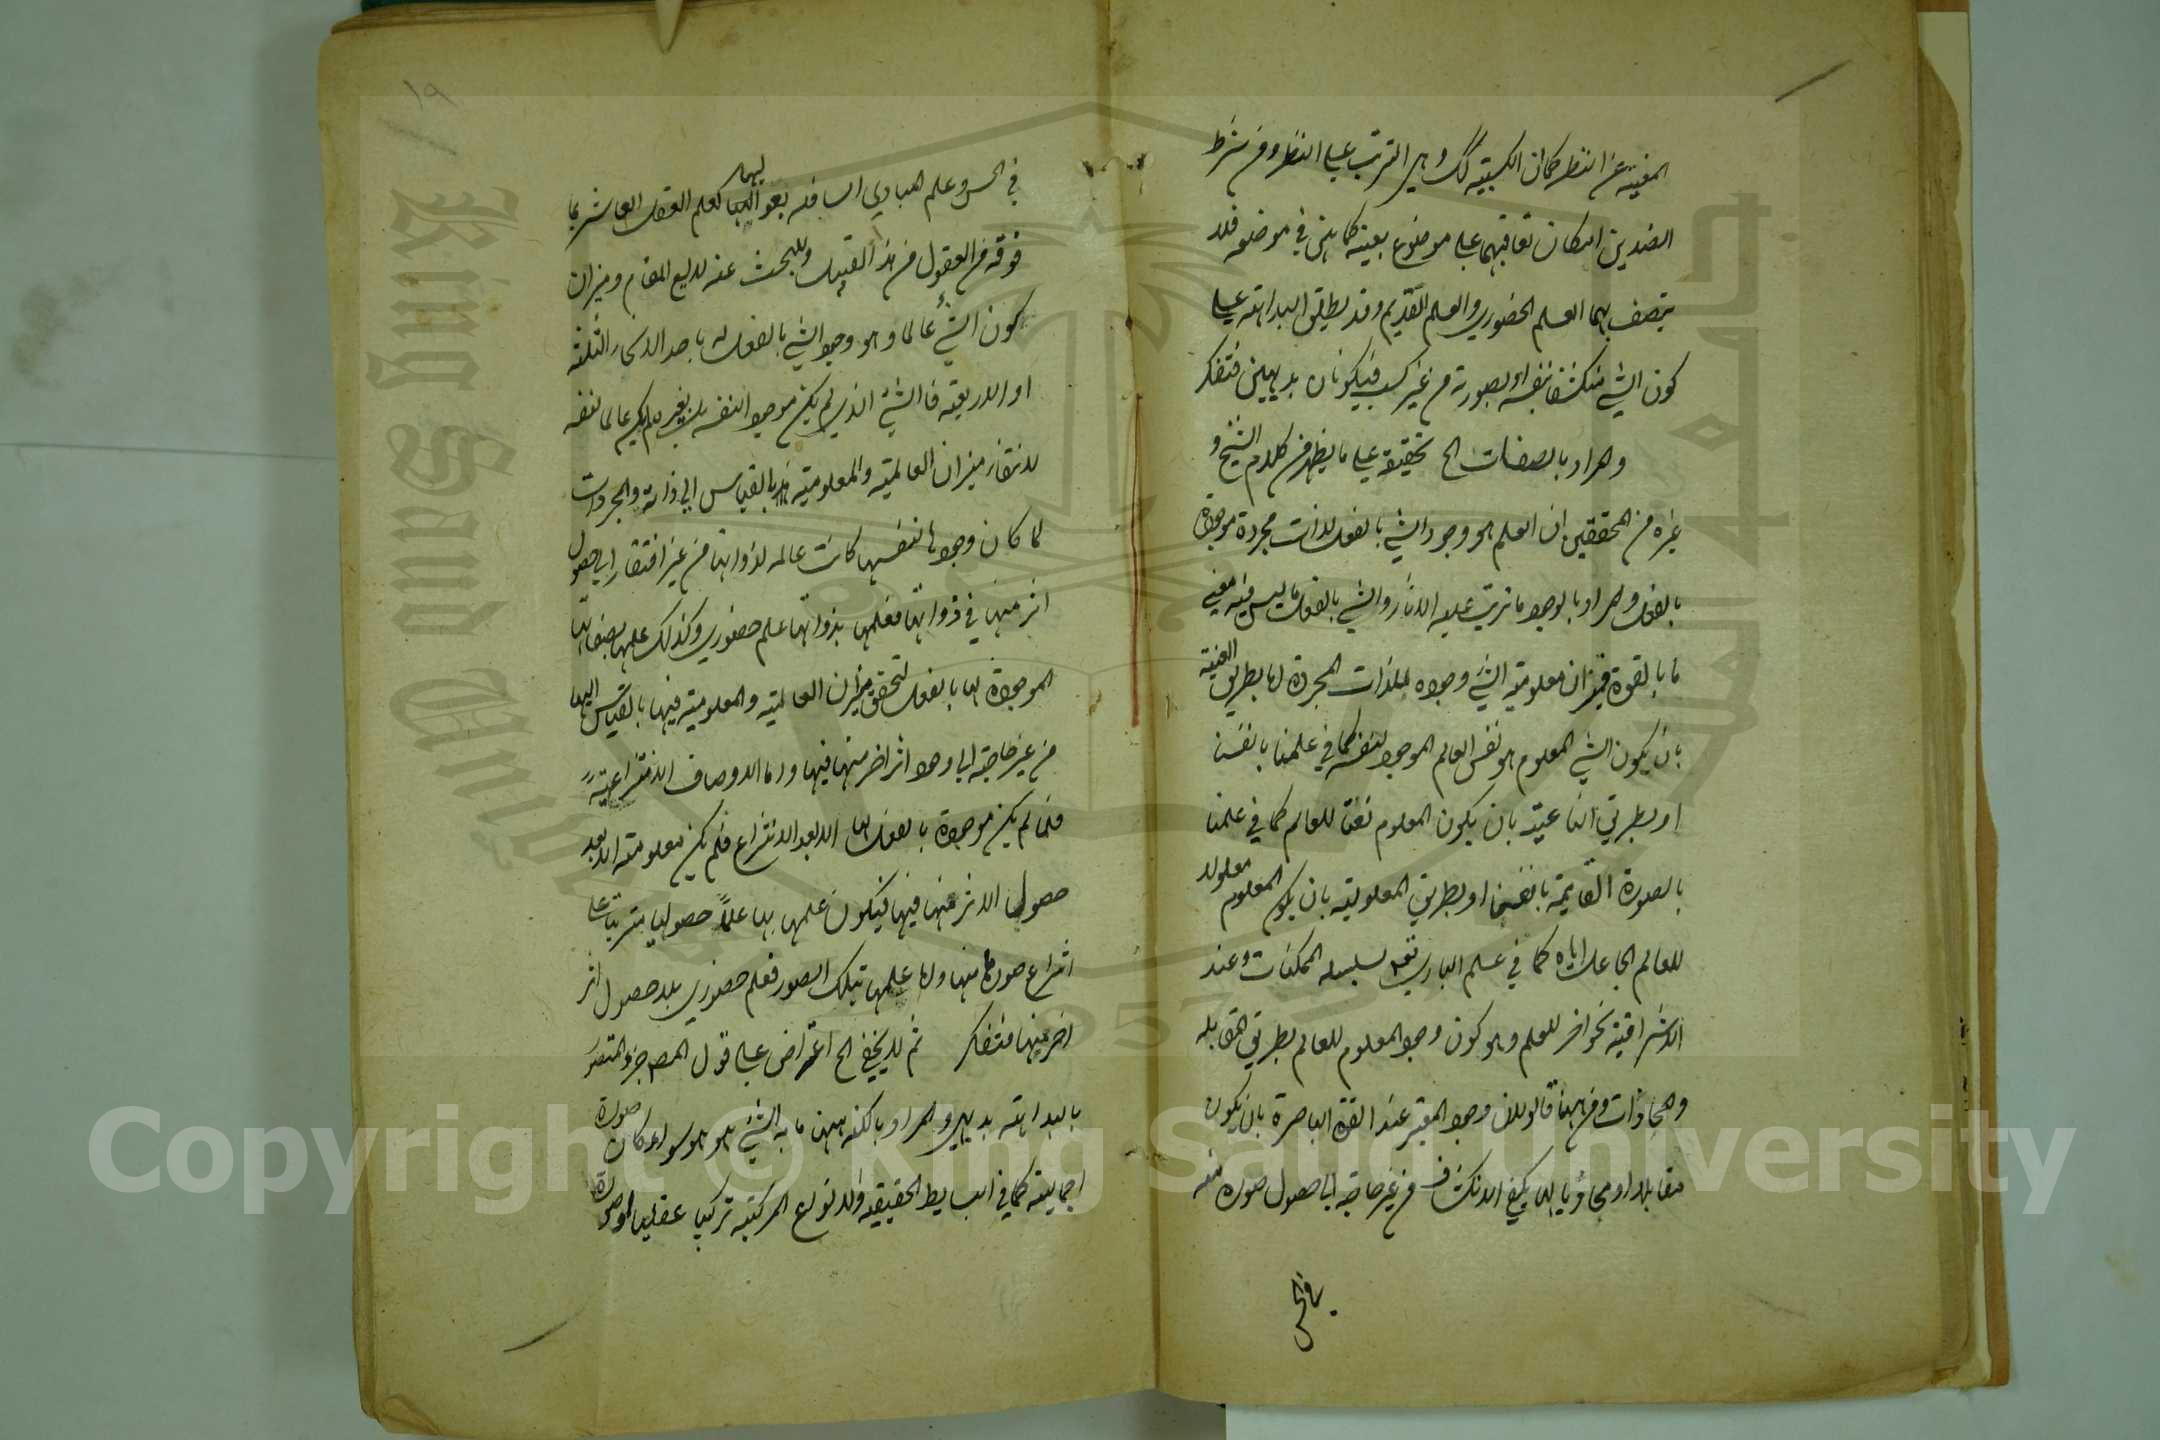 المغنية عن النظر كما ان الكسبية كك وهي الترتب على النظر ومن شرط
الضدين امكان تعاقبهما على موضوع بعينه كما بين في موضعه فلا
يتصف بهما العلم الحضوري والعلم القديم وقد يطلق البداهة على
كون الشي منكشفا بنفسه او بصورته من غير كسب فيكونان بديهيين فتفكر
والمراد بالصفات الخ تحقيقه على ما يظهر من كلام الشيخ و
غيره من المحققين ان العلم هو وجود الشي بالفعل لذات مجردة موجودة
بالفعل والمراد بالوجود ما ترتب عليه الاثار والشي بالفعل ما ليس فيه معنى
ما بالقوة فميزان معلومية الشي وجوده للذات المجردة اما بطريق العينية
بان يكون الشي المعلوم هو نفس العالم الموجود لنفسه كما في علمنا بانفسنا
او بطريق الناعتية بان يكون المعلوم نعتا للعالم كما في علمنا
بالصورة القايمة بانفسنا او بطريق المعلولية بان يكون المعلوم معلولا
للعالم الجاعل اياه كما في علم الباري تعالى بسلسلة الممكنات وعند
الاشراقية نحو اخر للعلم وهو كون وجود المعلوم للعالم بطريق المقابلة
والمحاذات ومن ههنا قالوا ان وجود المبصر عند القوة الباصرة بان يكون
مقابلا او محاذيا لها يكفي الانكشاف من غير حاجة الى حصول صورة منه
في الحس
١٩
في الحس وعلم المبادي السافلة بعواليها كعلم العقل العاشر بما
فوقه من العقول من هذا القبيل وللبحث عنه لا يسع المقام وميزان
كون الشي عالما وهو وجود الشي بالفعل له باحد الانحاء الثلثة
او الاربعة فالشي الذي لم يكن موجودا لنفسه بل لغيره لم يكن عالما لنفسه
لانتفاء ميزان العالمية والمعلومية هناك بالقياس الى ذاته والمجردات
لما كان وجودها لنفسها كانت عالمة لذواتها من غير افتقار الى حصول
اثر منها في ذواتها فعلمها بذواتها علم حضوري وكذلك علمها بصفاتها
الموجودة لها بالفعل لتحقق ميزان العالمية والمعلومية فيها بالقياس اليها
من غير حاجة الى وجود اثر اخر منها فيها واما الاوصاف الانتزاعية
فلما لم يكن موجودة بالفعل لها الا بعد الانتزاع فلم يكن معلومة الا بعد
حصول الاثر منها فيها فيكون علمها بها علما حصوليا مترتبا على
انتزاع صورها منها واما علمها بتلك الصور فعلم حضوري بلا حصول اثر
اخر منها فتفكر ثم لا يخفى الخ اعتراض على قول المص جزء المتصور
بالبداهة بديهي والمراد بالكنه ههنا ما به الشي هو هو سواء كان صورة
اجمالية كما في البسايط الحقيقية والانواع المركبة تركيبا عقليا او صورة
Copyright © King Saud University
King Saud University
1957